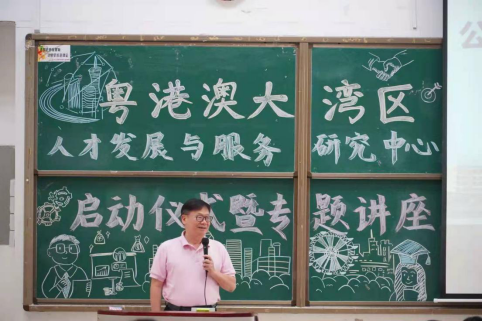 粤港澳大湾区
人才发展与服务研究中心
启动仪式暨专题讲座